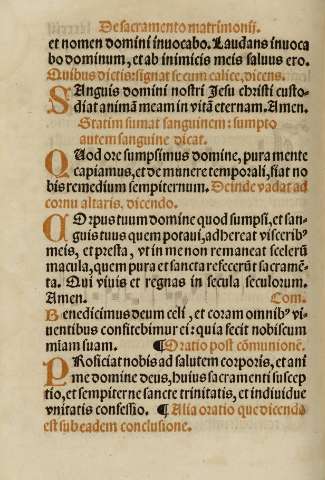 De sacramento matrimonij.
et nomen domini inuocabo. Laudans inuoca
bo dominum, et ab inimicis meis saluus ero.
Quibus dictis: signat se cum calice, dicens.
SAnguis domini nostri Jesu christi custo-
diat animā meam in vitā eternam. Amen.
Statim sumat sanguinem: sumpto
autem sanguine dicat.
QUod ore sumpsimus domine, pura mente
capiamus, et de munere temporali, fiat no
bis remedium sempiternum. Deinde vadat ad
cornu altaris. dicendo.
COrpus tuum domine quod sumpsi, et san-
guis tuus quem potaui, adhereat visceribꝰ
meis, et presta, vt in me non remaneat scelerū
macula, quem pura et sancta refecerūt sacramē-
ta. Qui viuis et regnas in secula seculorum.
Amen. Com.
Benedicimus deum celi, et coram omnibꝰ vi-
uentibus confitebimur ei: quia fecit nobiscum
miam suam. ¶ Oratio post cōmunionē.
PRoficiat nobis ad salutem corporis, et ani
me domine deus, huius sacramenti suscep
tio, et sempiterne sancte trinitatis, et indiuidue
vnitatis confessio. ¶ Alia oratio que dicenda
est sub eadem conclusione.